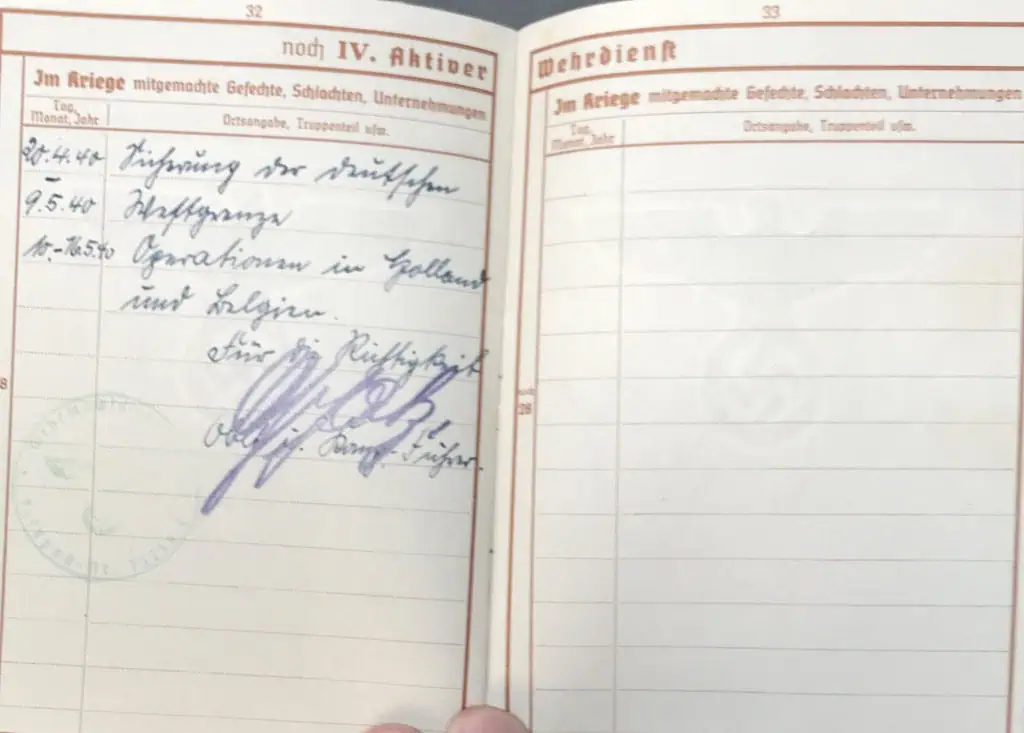 32
noch IV. Aktiver
Im Kriege mitgemachte Gefechte, Schlachten, Unternehmungen
Tag, Monat, Jahr
Ortsangabe, Truppenteil usw.
20.4.40 Sicherung der deutschen
–
9.5.40 Westgrenze
10.-16.5.40 Operationen in Holland
und Belgien.
Für die Richtigkeit
Führer.
8
33
Wehrdienst
Im Kriege mitgemachte Gefechte, Schlachten, Unternehmungen
Tag, Monat, Jahr
Ortsangabe, Truppenteil usw.
noch
28